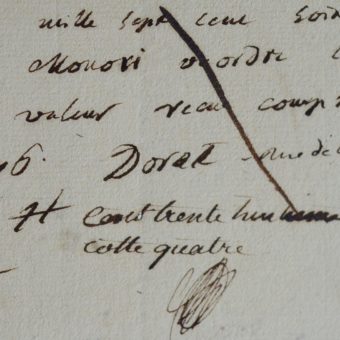 mille sept cent soix
Monori ou ordre
valeur recue comp
6. Dorat rue de
cent trente huit
cotte quatre